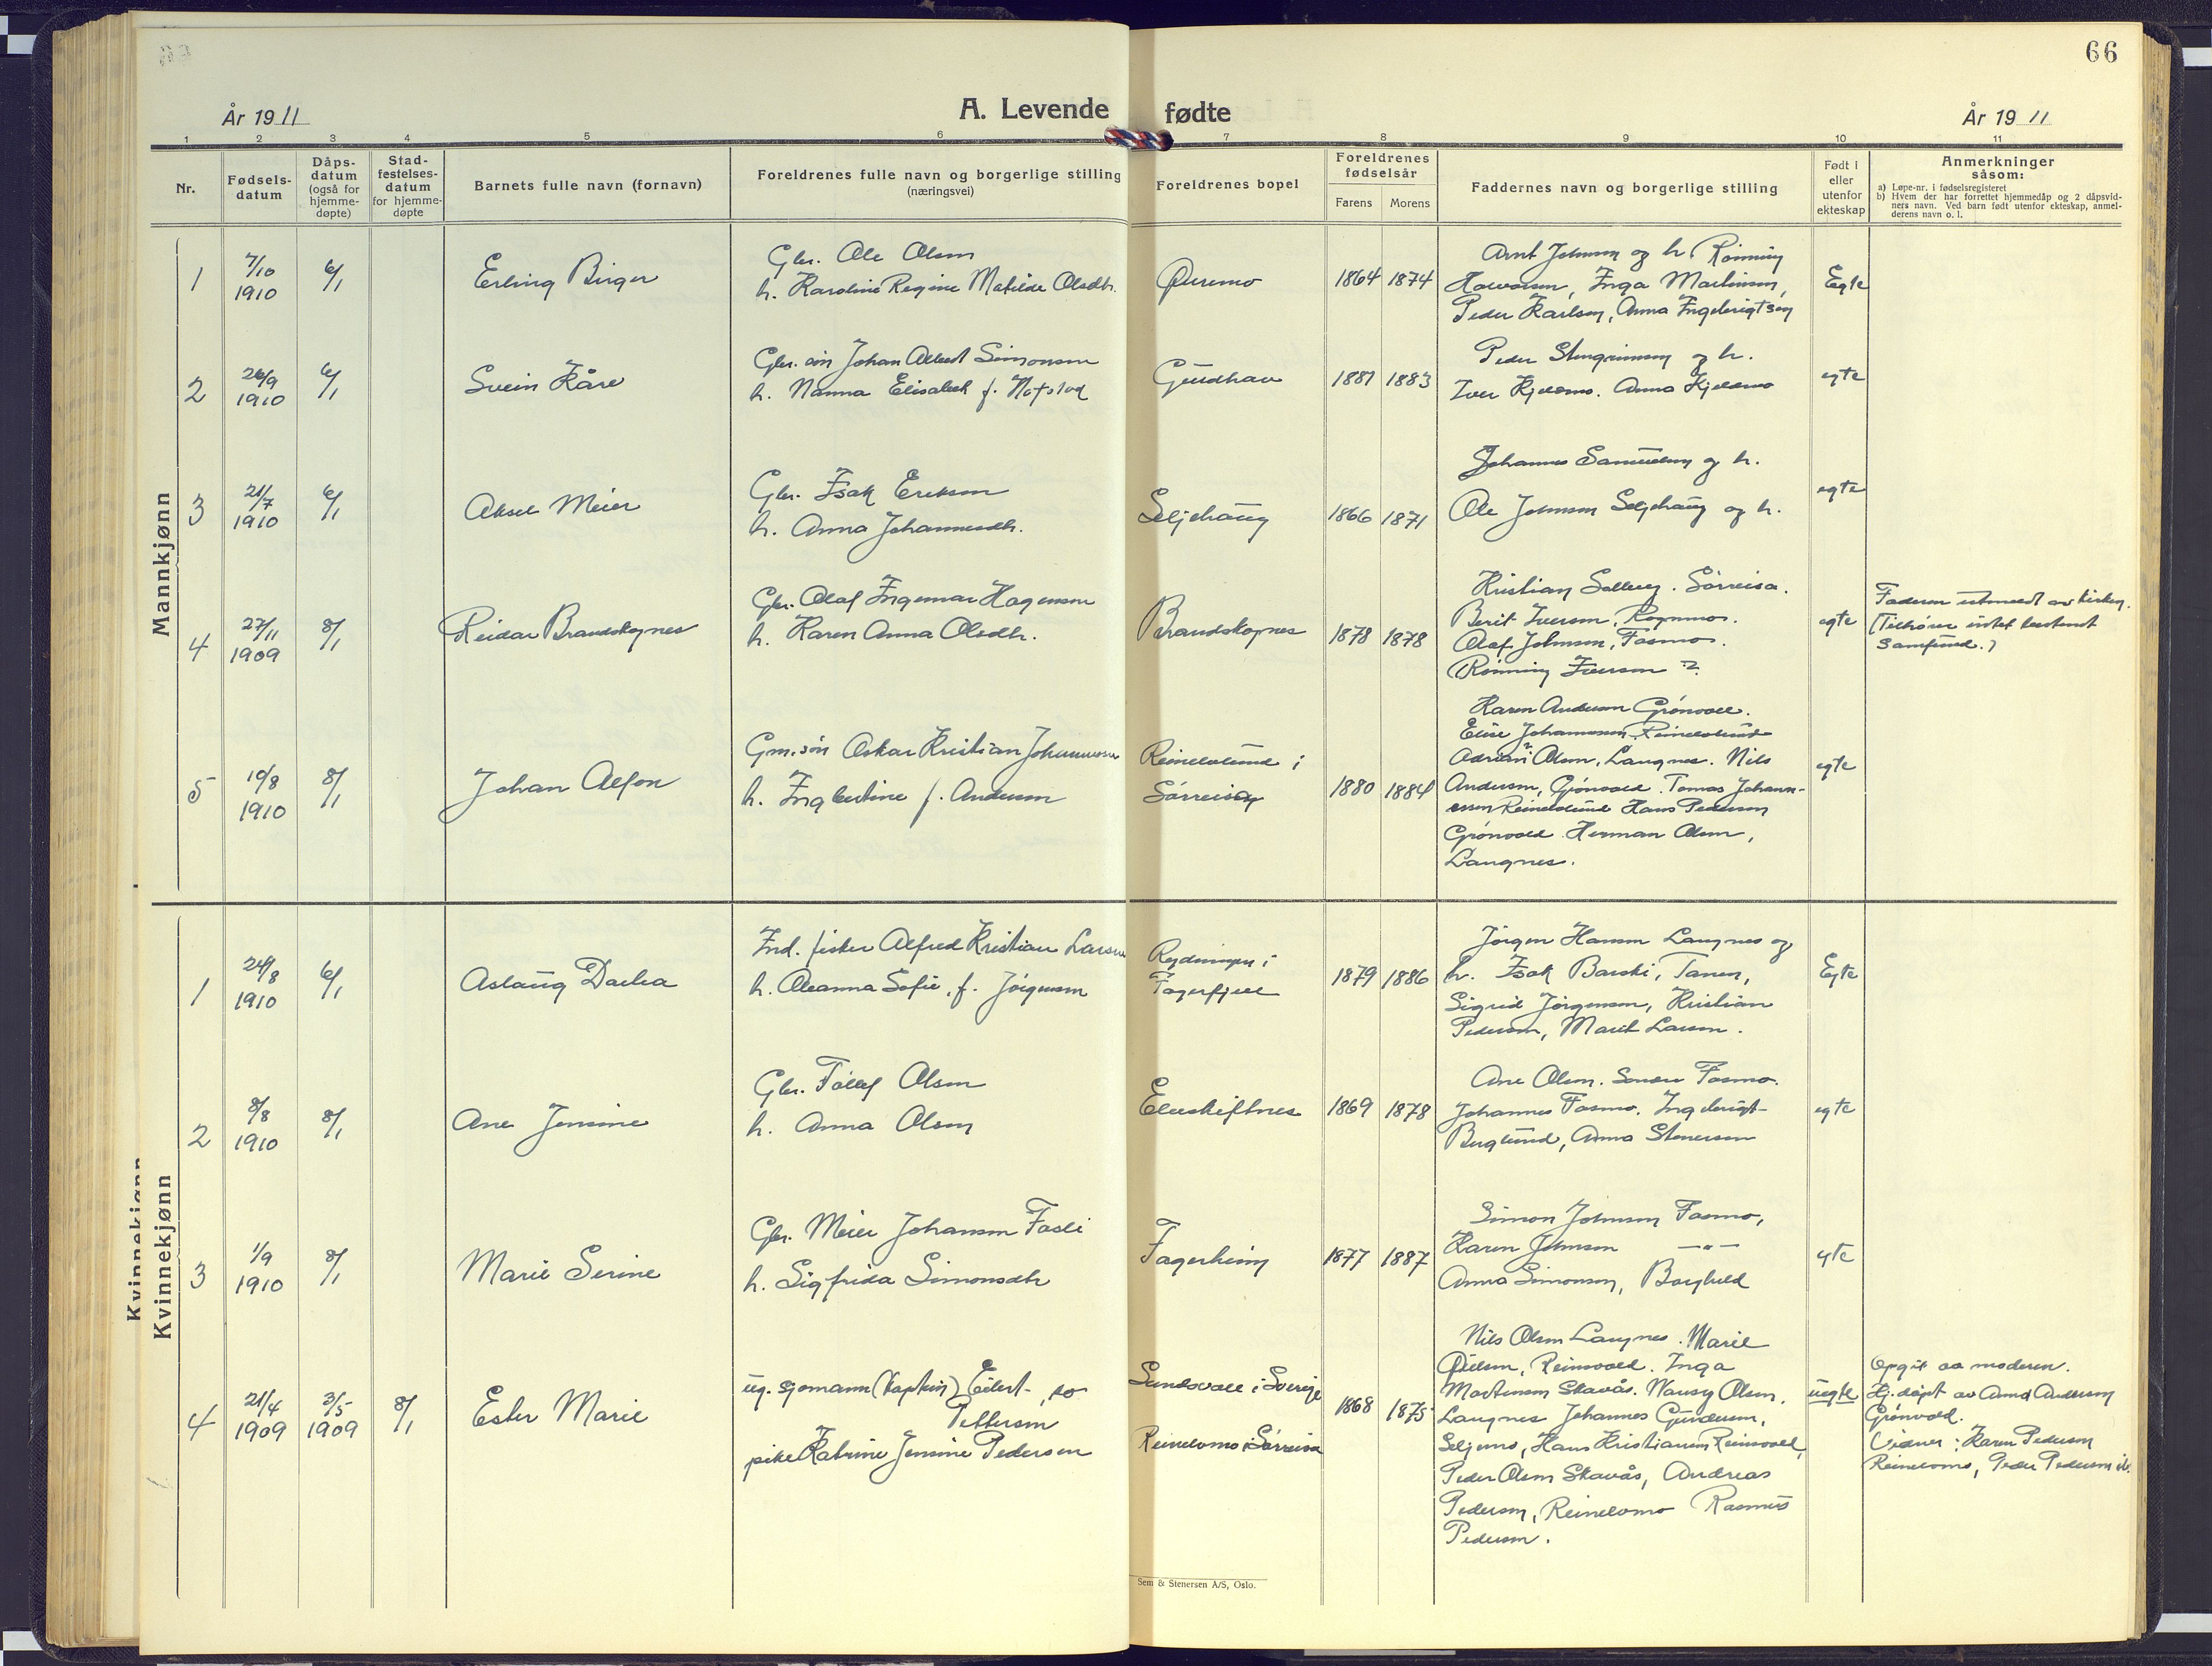 66
År 1911
A. Levende fødte
År 1911
1 2 3 4 5 6 7 8 9 10 11
Nr.
Fødsels-
datum
Dåps-
datum
(også for
hjemme-
døpte)
Stad-
festelses-
datum
for hjemme-
døpte
Barnets fulle navn (fornavn)
Foreldrenes fulle navn og borgerlige stilling
(næringsvei)
Foreldrenes bopel
Foreldrenes
fødselsår
Farens Morens
Faddernes navn og borgerlige stilling
Født i
eller
utenfor
ekteskap
Anmerkninger
såsom:
a) Løpe-nr. i fødselsregisteret
b) Hvem der har forrettet hjemmedåp og 2 dåpsvid-
ners navn. Ved barn født utenfor ekteskap, anmel-
derens navn o. l.
Mannkjønn
1
7/10
1910
6/1
Erling Birger
Gbr. Ole Olsen
h. Karoline Regine Matilde Olsdtr.
1864 1874
Arnt Johnsen og h. Rønning
Halvorsen, Inga Martinsen,
Peder Karlsen, Anna Ingebrigtsen
Egte
2
26/9
1910
6/1
Svein Kåre
Gbr. søn Johan Albert Simonsen
h. Nanna Elisabeth f. Hofslod
Gundhav
1881 1883
Peder Stengrimsen og h.
Iver Kjelmo. Anna Kjelmo
egte
3
21/7
1910
6/1
Aksel Meier
Gbr. Isak Eriksen
h. Anna Johannesdtr.
Seljehaug
1866 1871
Johannes Samuelsen og h.
Ole Johnsen Seljehaug og h.
egte
4
27/11
1909
8/1
Reidar Brandskognes
Gbr. Olaf Ingemar Hagensen
h. Karen Anna Olsdtr.
Brandskognes
1878 1878
Kristian Solberg. Sørreisa.
Berit Iversen, Rognmo.
Olaf Johnsen, Fosmo.
Rønning Iversen ?
egte
Faderen utmeldt av kirken.
(Tilhører intet bestemt
samfund.)
5
10/8
1910
8/1
Johan Alfon
Gm.søn Oskar Kristian Johannessen
h. Ingbertine f. Andersen
Reinelvlund i
Sørreisa
1880 1884
Karen Andersen Grönvoll.
Elise Johannessen Reinelvlund
Adrian Olsen, Langnes. Nils
Andersen, Grønvold. Tomas Johann-
essen Reinelvlund Hans Pedersen
Grønvold. Herman Olsen,
Langnes.
egte
Kvinnekjønn
Kvinnekjønn
1
24/8
1910
6/1
Aslaug Dacha
Ind. fisker Alfred Kristian Larsen
h. Oleanna Sofie, f. Jörgensen
Rydningen i
Fagerfjell
1879 1886
Jörgen Hansen Langnes og
h. Isak Barski, Tanen,
Sigrid Jörgensen, Kristian
Pedersen, Marit Larsen.
Egte
2
8/8
1910
8/1
Ane Jensine
Gbr. Tollef Olsen
h. Anna Olsen
Elveskiftnes
1869 1878
Ane Olsen. Fosmo.
Johannes Fosmo. Ingebrigt
Berglund, Anna Stenersen
egte
3
1/9
1910
8/1
Marie Serine
Gbr. Meier Johansen Fasli
h. Sigfrida Simonsdtr
Fagerheim
1877 1887
Simon Johnsen Fosmo,
Karen Johnsen —"—
Anna Simonsen, Borghild
egte
4
21/4
1909
3/5
1909
8/1
Ester Marie
ug. sjømann (kaptein) Eilert
Pettersen
pike Katrine Jensine Pedersen
Sundsvall i Sverige
Reinelvmo i Sørreisa
1868 1875
Nils Olsen Langnes. Marie
Reinvold. Inga
Mortensen Skavås. Nansy Olsen,
Langnes Johannes Gundersen,
Seljemo, Hans Kristiansen Reinvold,
Peder Olsen Skavås, Andreas
Pedersen, Reinelvmo Rasmus
Pedersen.
uegte
Opgit av moderen.
Hj.døpt av Anna Andersen
Grønvold.
Vidner: Karen Pedersen
Reinelvmo, Peder Pedersen ib.
Sem & Stenersen A/S, Oslo.